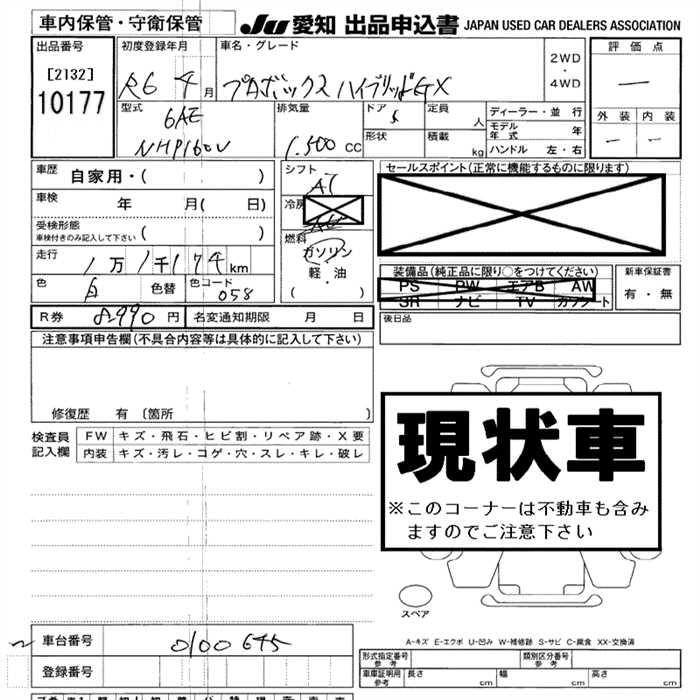 車内保管・守衛保管
JU 愛知 出品申込書 JAPAN USED CAR DEALERS ASSOCIATION
出品番号
[2132]
10177
初度登録年月
R6 年 4 月
車名・グレード
プロボックス ハイブリッド GX
2WD
・
4WD
評価点
―
外装 内装
― ―
型式
6AE
NHP160V
排気量
1,500 CC
ドア 5
形状
定員 人
積載 kg
ディーラー・並行
モデル年式 年
ハンドル 左・右
車歴 自家用・( )
車検 年 月( 日)
受検形態
車検付きのみ記入して下さい ( )
走行 1万1千174km
色 白 色替 色コード 058
シフト AT
冷房
燃料
ガソリン
軽・油
( ・ )
セールスポイント(正常に機能するものに限ります)
装備品(純正品に限り○をつけてください)
PS PW エアB AW
SR ナビ TV カワシート
新車保証書
有・無
R券 8,990 円 名変通知期限 月 日
後日品
注意事項申告欄(不具合内容等は具体的に記入して下さい)
修復歴 有〔箇所 〕
検査員記入欄
FW キズ・飛石・ヒビ割・リペア跡・X要
内装 キズ・汚レ・コゲ・穴・スレ・キレ・破レ
現状車
※このコーナーは不動車も含み
ますのでご注意下さい
スペア
A-キズ E-エクボ U-凹み W-補修跡 S-サビ C-腐食 XX-交換済
車台番号 0100645
登録番号
型式指定番号 参考
類別区分番号 参考
車庫証明用 参考 長さ cm 幅 cm 高さ cm